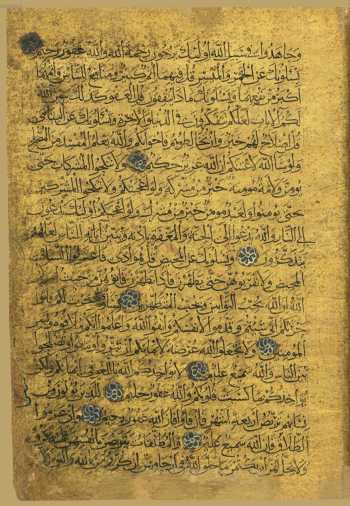 وجاهدوا في سبيل الله أولئك يرجون رحمة الله والله غفور رحيم
يسألونك عن الخمر والميسر قل فيهما إثم كبير ومنافع للناس وإثمهما
أكبر من نفعهما ويسألونك ماذا ينفقون قل العفو كذلك يبين الله
لكم الآيات لعلكم تتفكرون في الدنيا والآخرة ويسألونك عن اليتامى
قل إصلاح لهم خير وإن تخالطوهم فإخوانكم والله يعلم المفسد من المصلح
ولو شاء الله لأعنتكم إن الله عزيز حكيم ولا تنكحوا المشركات حتى
يؤمن ولأمة مؤمنة خير من مشركة ولو أعجبتكم ولا تنكحوا المشركين
حتى يؤمنوا ولعبد مؤمن خير من مشرك ولو أعجبكم أولئك يدعون
إلى النار والله يدعو إلى الجنة والمغفرة بإذنه ويبين آياته للناس لعلهم
يتذكرون ويسألونك عن المحيض قل هو أذى فاعتزلوا النساء في
المحيض ولا تقربوهن حتى يطهرن فإذا تطهرن فأتوهن من حيث أمركم
الله إن الله يحب التوابين ويحب المتطهرين نساؤكم حرث لكم فأتوا
حرثكم أنى شئتم وقدموا لأنفسكم واتقوا الله واعلموا أنكم ملاقوه وبشر
المؤمنين ولا تجعلوا الله عرضة لأيمانكم أن تبروا وتتقوا وتصلحوا
بين الناس والله سميع عليم لا يؤاخذكم الله باللغو في أيمانكم ولكن
يؤاخذكم بما كسبت قلوبكم والله غفور حليم للذين يؤلون من
نسائهم تربص أربعة أشهر فإن فاءوا فإن الله غفور رحيم وإن عزموا
الطلاق فإن الله سميع عليم والمطلقات يتربصن بأنفسهن ثلاثة قروء
ولا يحل لهن أن يكتمن ما خلق الله في أرحامهن إن كن يؤمن بالله واليوم